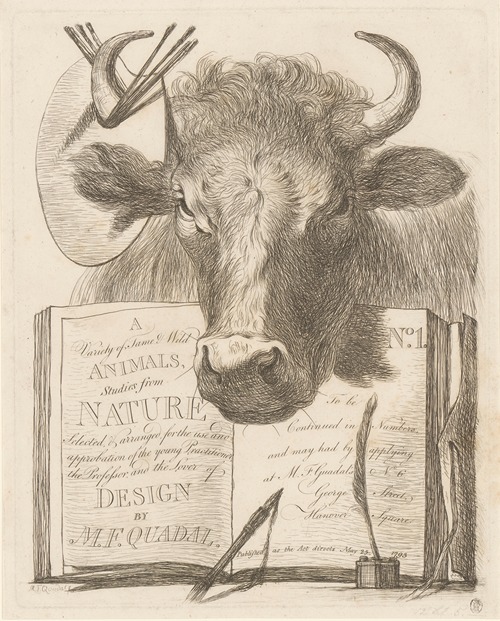 A
Variety of Tame & Wild
ANIMALS,
Studies from
NATURE
Selected & arranged for the use and
approbation of the young Practitioner
the Professor and the Lover of
DESIGN
BY
M. F. QUADAL.
No. 1.
To be
Continued in Numbers
and may had by applying
at M. F. Quadals
George Street,
Hanover Square
Published as the Act directs Mar 25 1793